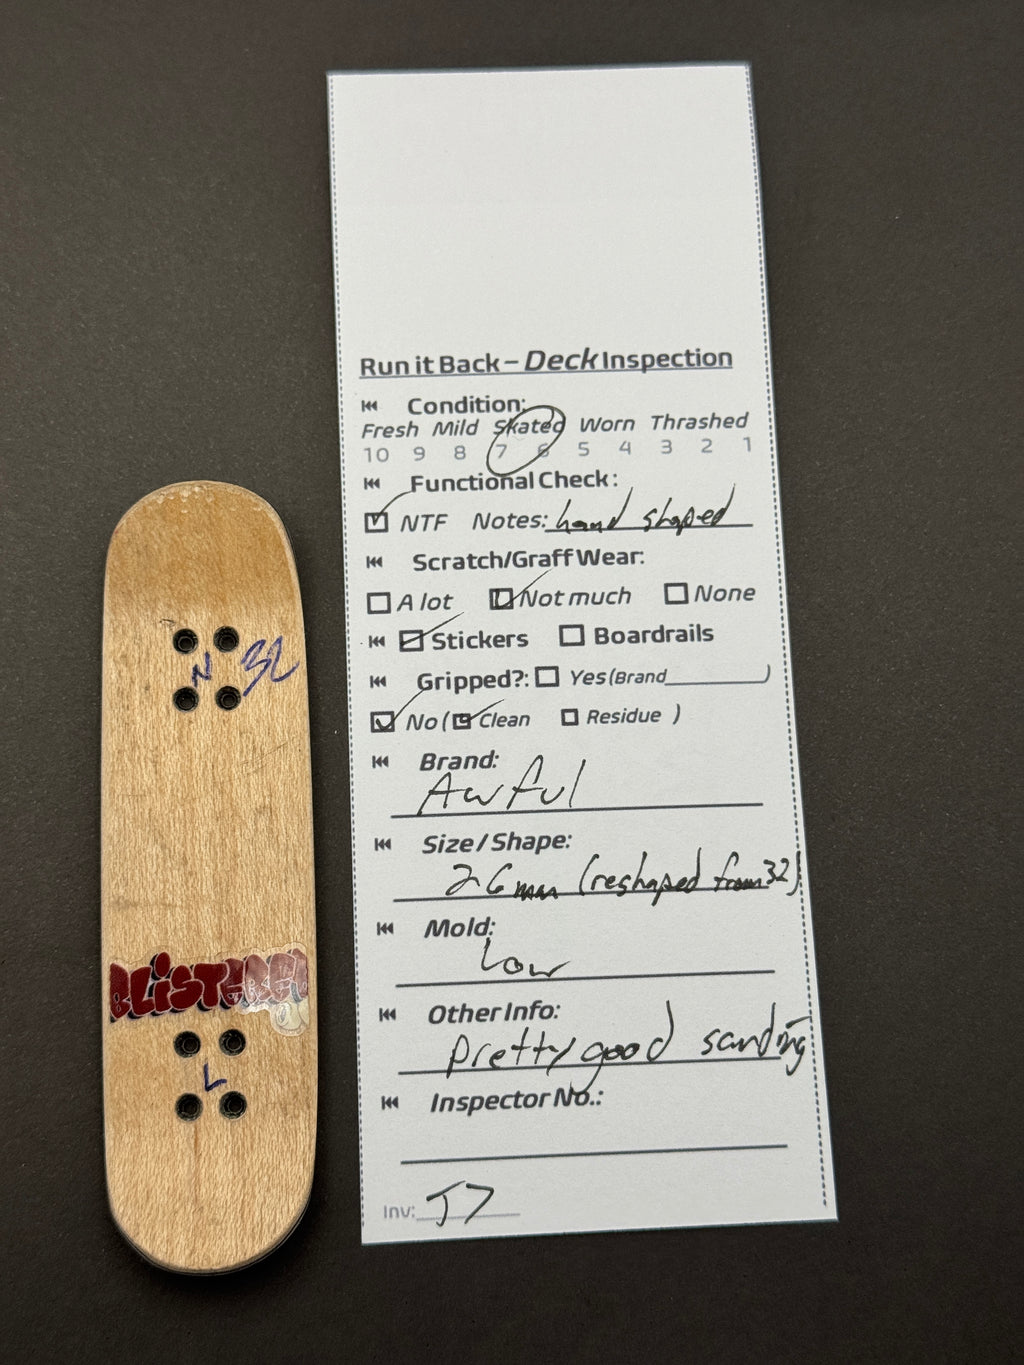 Run it Back – Deck Inspection
Condition:
Fresh Mild Skated Worn Thrashed
10 9 8 7 6 5 4 3 2 1
Functional Check:
NTF Notes: hand shaped
Scratch/Graff Wear:
A lot Not much None
Stickers Boardrails
Gripped?: Yes (Brand________)
No ( Clean Residue )
Brand:
Awful
Size / Shape:
26mm (reshaped from 32)
Mold:
Low
Other Info:
Pretty good sanding
Inspector No.:
Inv:
N 32
BLISTERED
L